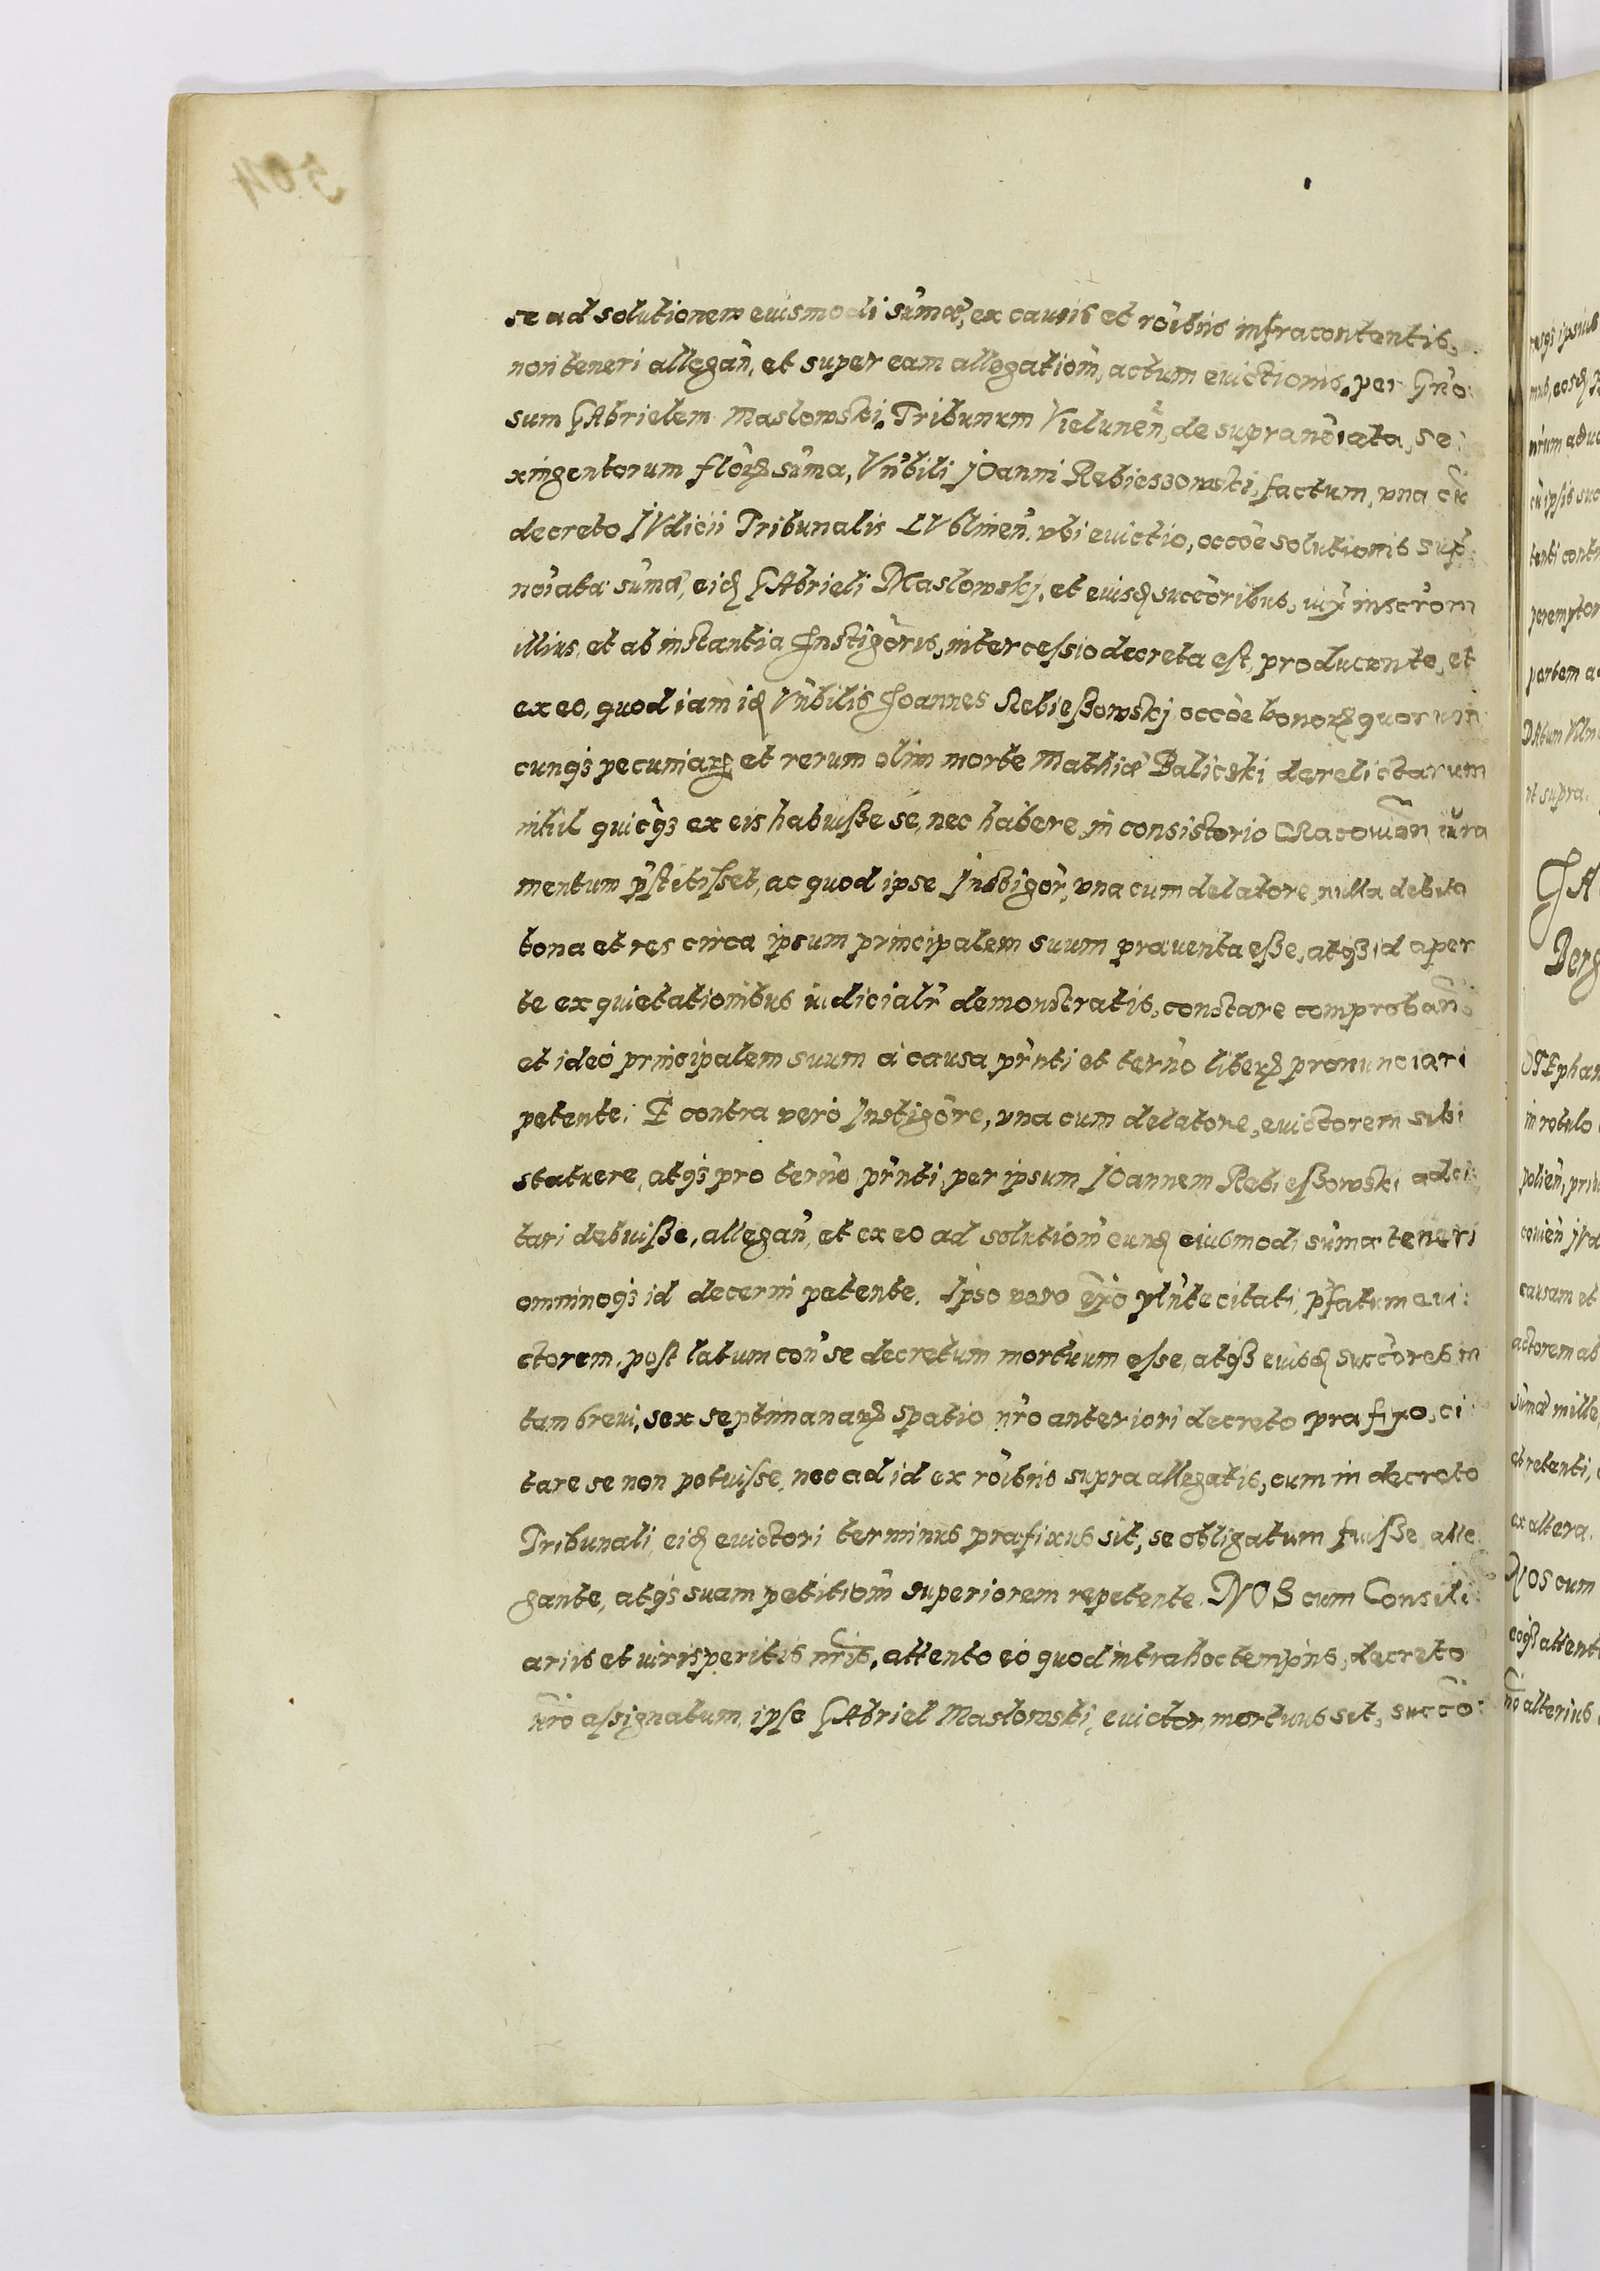 se ad solutionem euismodi sum̃æ, ex causis et rõibus infracontentis,
non teneri allegan̄, et super eam allegatiom̃, actum euictionis, per Gño
sum GAbrielem Maslowski Tribunum Vielunen̄, de supranõiata, se
xingentorum florꝝ sum̃a, Vnbili JOanni Rebieszowski, factum, vna cũ
decreto JVdicii Tribunalis LVblinen̄. vbi euictio, occõe solutionis sup
nõiatæ sum̃æ, eidꝫ GAbrieli Maslowskj, et eiusdꝫ succoribus, iux̃ inscrõm
illius, et ab instantia Jnstigõris, intercessio decreta est, producente, et
ex eo, quod iam idꝫ Vnbilis Joannes Rebießowskj occõe bonorꝝ quorum
cunqꝫ pecuniarꝝ et rerum olim morte Mathiæ Balicski derelictarum
nihil quicqꝫ ex eis habuisse se, nec habere, in consistorio CRacouien̄ iura
mentum p̃stitisset, ac quod ipse Jnstigõr, vna cum delatore, nulla debita
bona et res circa ipsum principalem suum præuenta eße, atqꝫ id aper
te ex quietationibus iudicialr̃ demonstratis, constare comproban̄
et ideo principalem suum à causa pr̃nti et term̃o liberꝝ pronunciari
petente. E contra verò Jnstigõre, vna cum delatore, euictorem sibi
statuere, atqꝫ pro term̃o pr̃nti, per ipsum JOannem Rebießowski adci
tari debuiße, allegan̄, et ex eo ad solutiom̃ eundꝫ eiusmodi sum̃æ teneri
omninoqꝫ id decerni petente. Ipso vero ex̃o pl̃nte citati, p̃fatum eui:
ctorem, post latum con̄ se decretum mortuum esse, atqꝫ eiusdꝫ succores in
tam breui, sex septimanarꝝ spatio nr̃o anteriori decreto præfixo, ci
tare se non potuisse, nec ad id ex rõibus supra allegatis, cum in decreto
Tribunali eidꝫ euictori terminus præfixus sit, se obligatum fuisse alle
gante, atqꝫ suam petitiom̃ superiorem repetente. NOS cum Consili
ariis et iurisperitis nr̃is, attento eo quod intra hoc tempus, decreto
nr̃o assignatum, ipse GAbriel Maslowski, euictor, mortuus sit, succo: